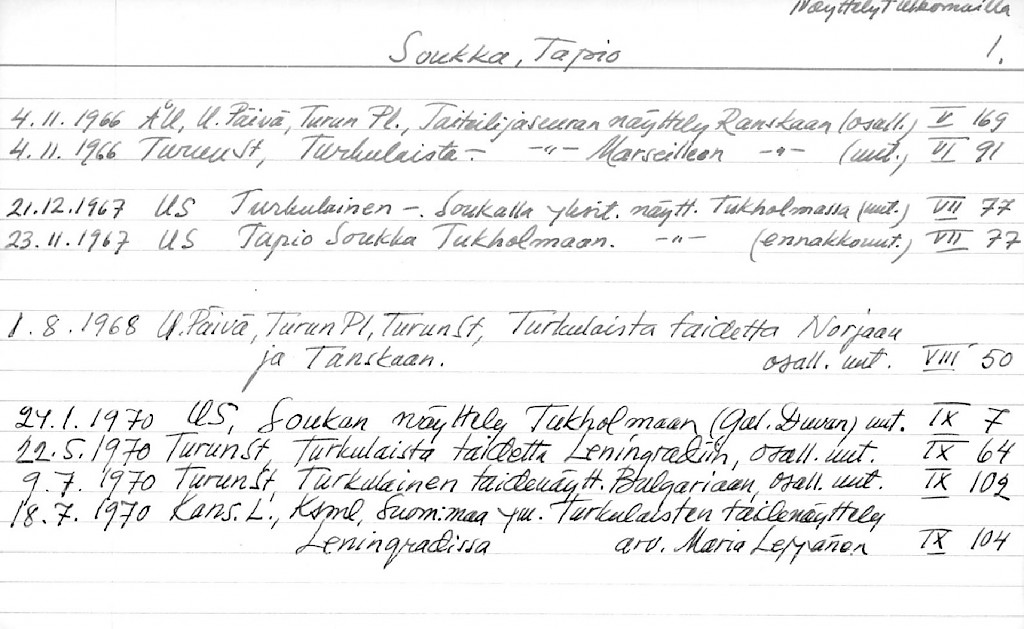 Näyttelyt ulkomailla
Soukka, Tapio 1.
4.11.1966 ÅU, U.Päivä, Turun Pl., Taiteilijaseuran näyttely Ranskaan (osall.) V 169
4.11.1966 TurunSt, Turkulaista - -"- Marseilleen -"- (uut.) VI 91
21.12.1967 US Turkulainen -. Soukalla yksit. näytt. Tukholmassa (uut.) VII 77
23.11.1967 US Tapio Soukka Tukholmaan. -"- (ennakkouut.) VII 77
1.8.1968 U.Päivä, Turun Pl, TurunSt, Turkulaista taidetta Norjaan
ja Tanskaan. osall. uut. VIII 50
24.1.1970 US, Soukan näyttely Tukholmaan (Gal. Duvan) uut. IX 7
22.5.1970 TurunSt, Turkulaista taidetta Leningradiin, osall. uut. IX 64
9.7.1970 TurunSt, Turkulainen taidenäytt. Bulgariaan, osall. uut. IX 102
18.7.1970 Kans.L., Ksml, Suom.maa ym. Turkulaisten taidenäyttely
Leningradissa arv. Maria Leppänen IX 104